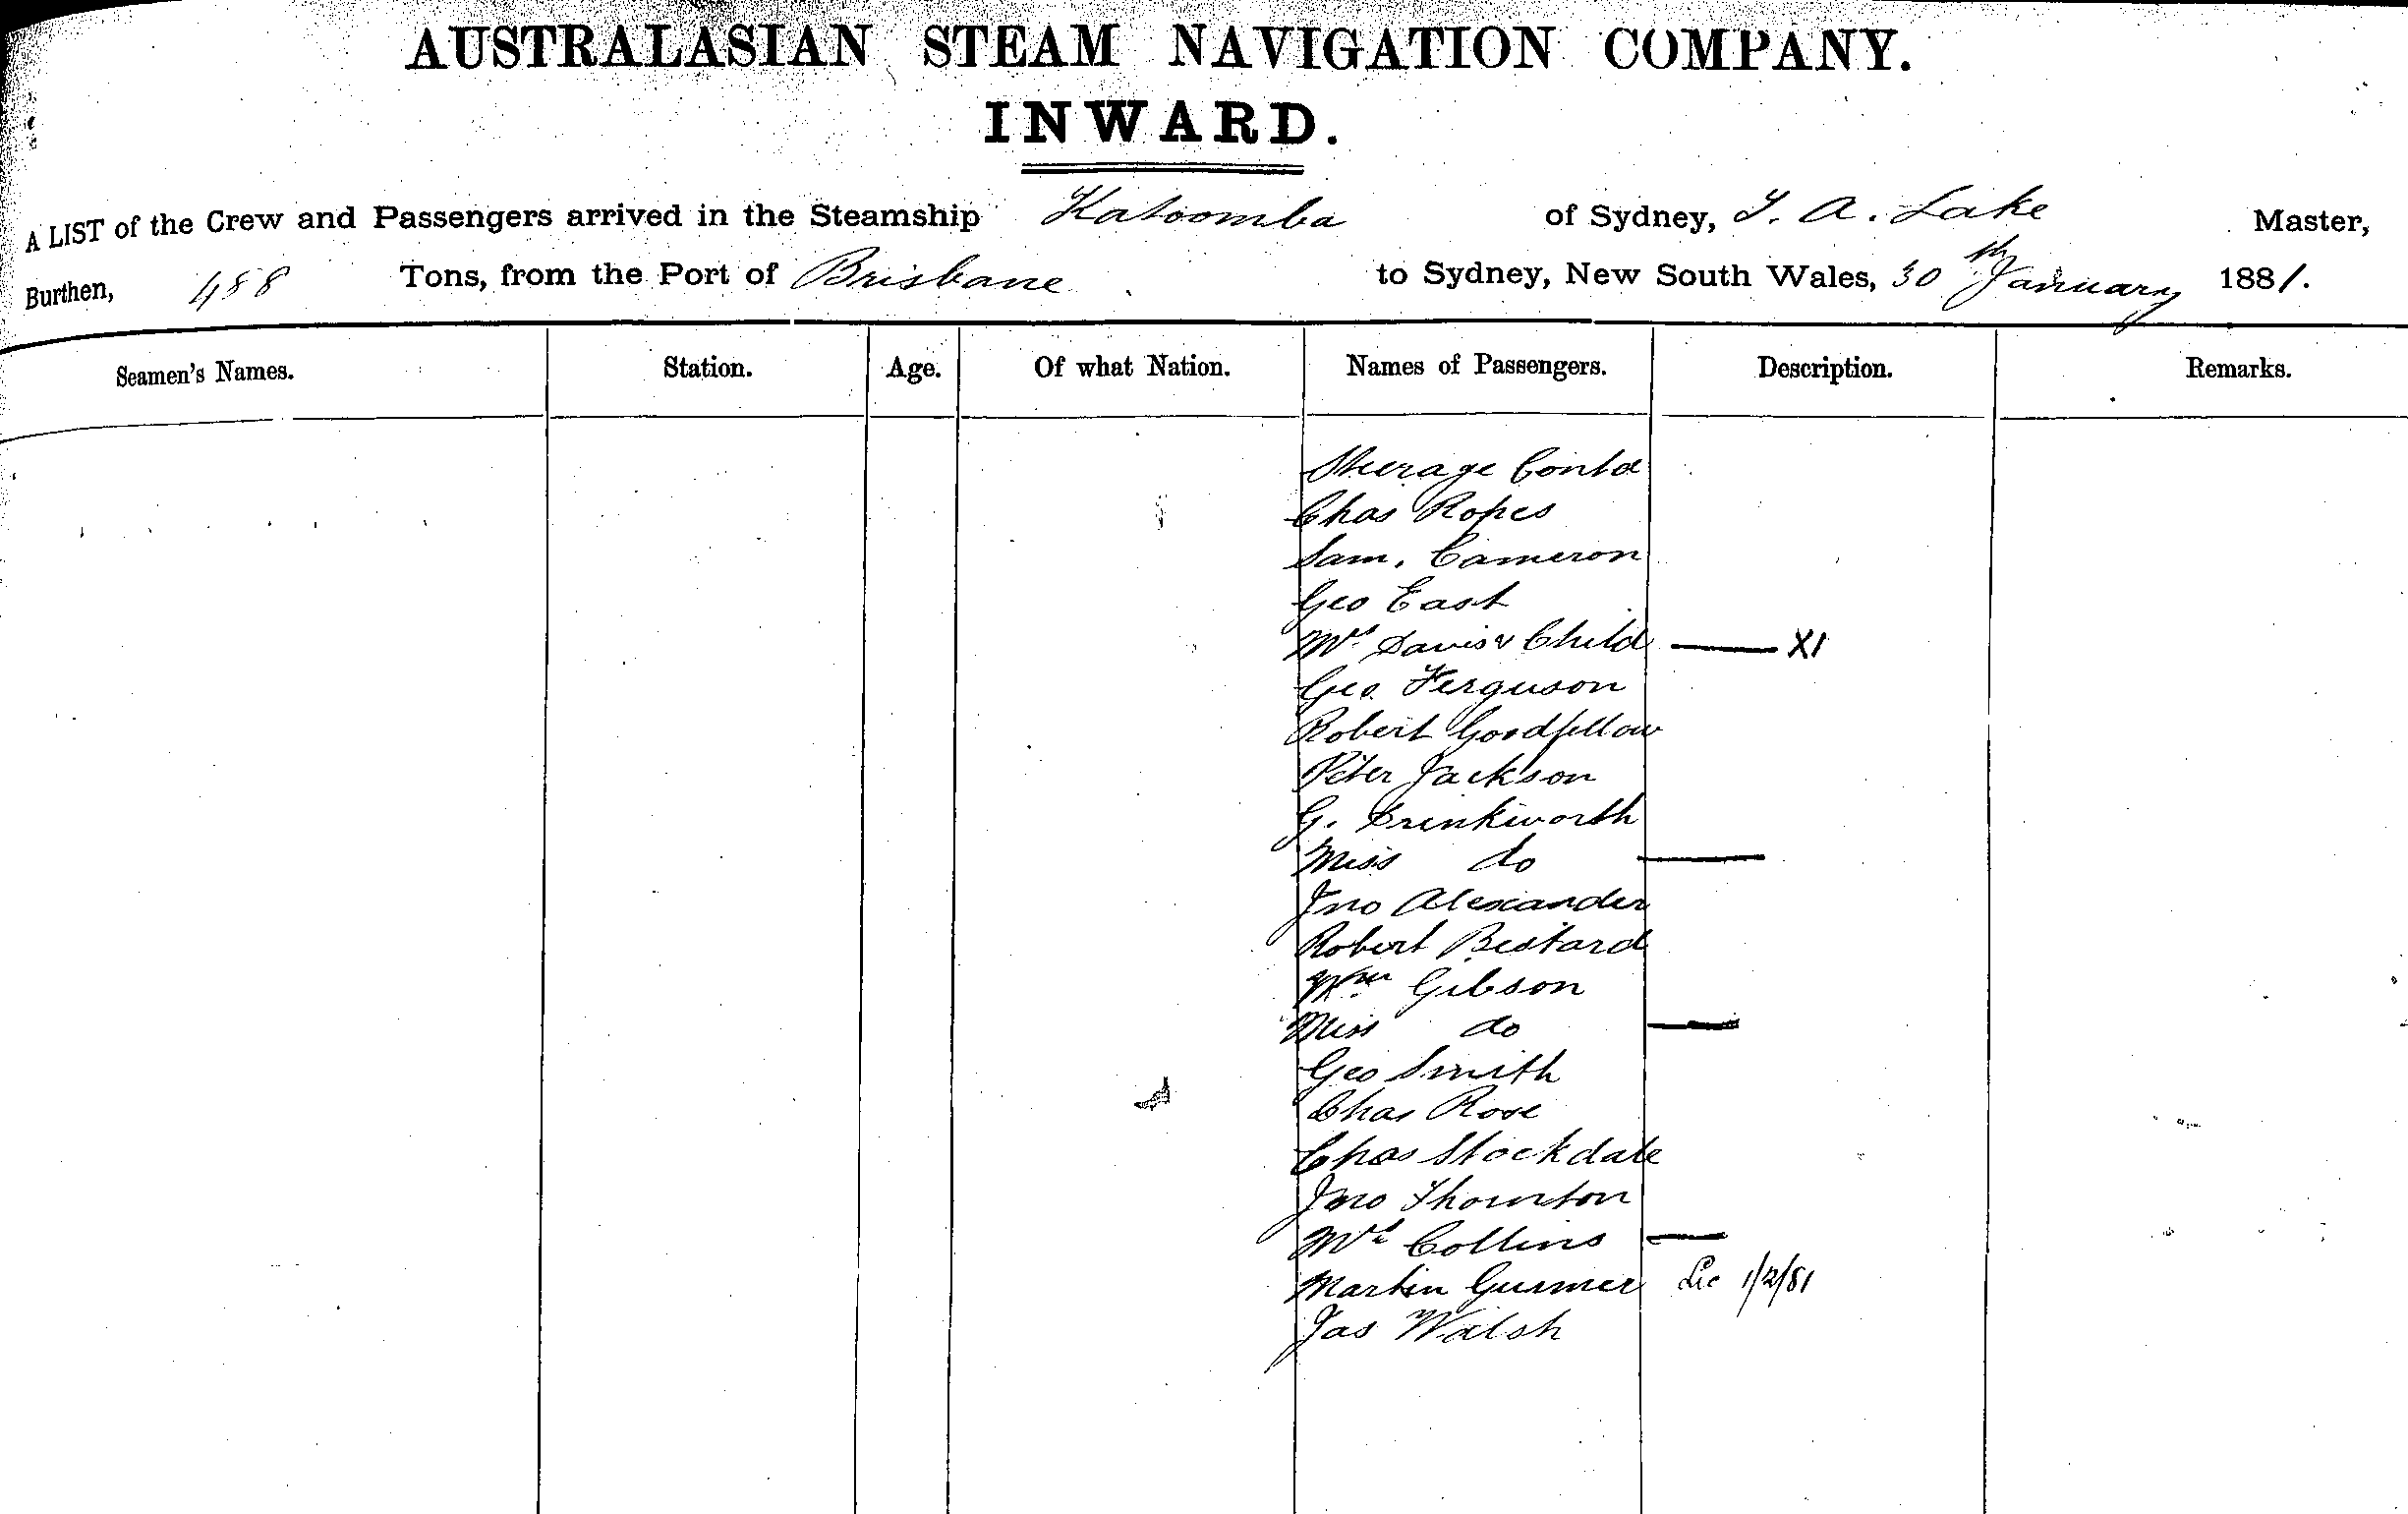 AUSTRALASIAN STEAM NAVIGATION COMPANY.
INWARD.
A LIST of the Crew and Passengers arrived in the Steamship Katoomba of Sydney, T. A. Lake Master,
Burthen, 488 Tons, from the Port of Brisbane to Sydney, New South Wales, 30th January 1881.
Seamen's Names. Station. Age. Of what Nation. Names of Passengers. Description. Remarks.
Steerage Contd
Chas Ropes
Sam. Cameron
Geo East
Mrs Davis & Child — X1
Geo. Ferguson
Robert Goodfellow
Peter Jackson
G. Drinkworth
Miss do —
Jno Alexander
Robert Bestard
Wm Gibson
Miss do —
Geo Smith
Chas Rose
Chas Stockdale
Jno Thornton
Mrs Collins —
Martin Gurmer 1/2/81
Jas Walsh